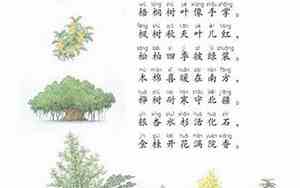 wú tóng shù yè xiàng shǒu zhǎng
梧桐树叶像手掌，
fēng shù qiū tiān yè ér hóng
枫树秋天叶儿红。
sōng bǎi sì jì pī lǜ zhuāng
松柏四季披绿装，
mù mián xǐ nuǎn zài nán fāng
木棉喜暖在南方。
huà shù nài hán shǒu běi jiāng
桦树耐寒守北疆，
yín xìng shuǐ shān huó huà shí
银杏水杉活化石，
jīn guì kāi huā mǎn yuàn xiāng
金桂开花满院香。